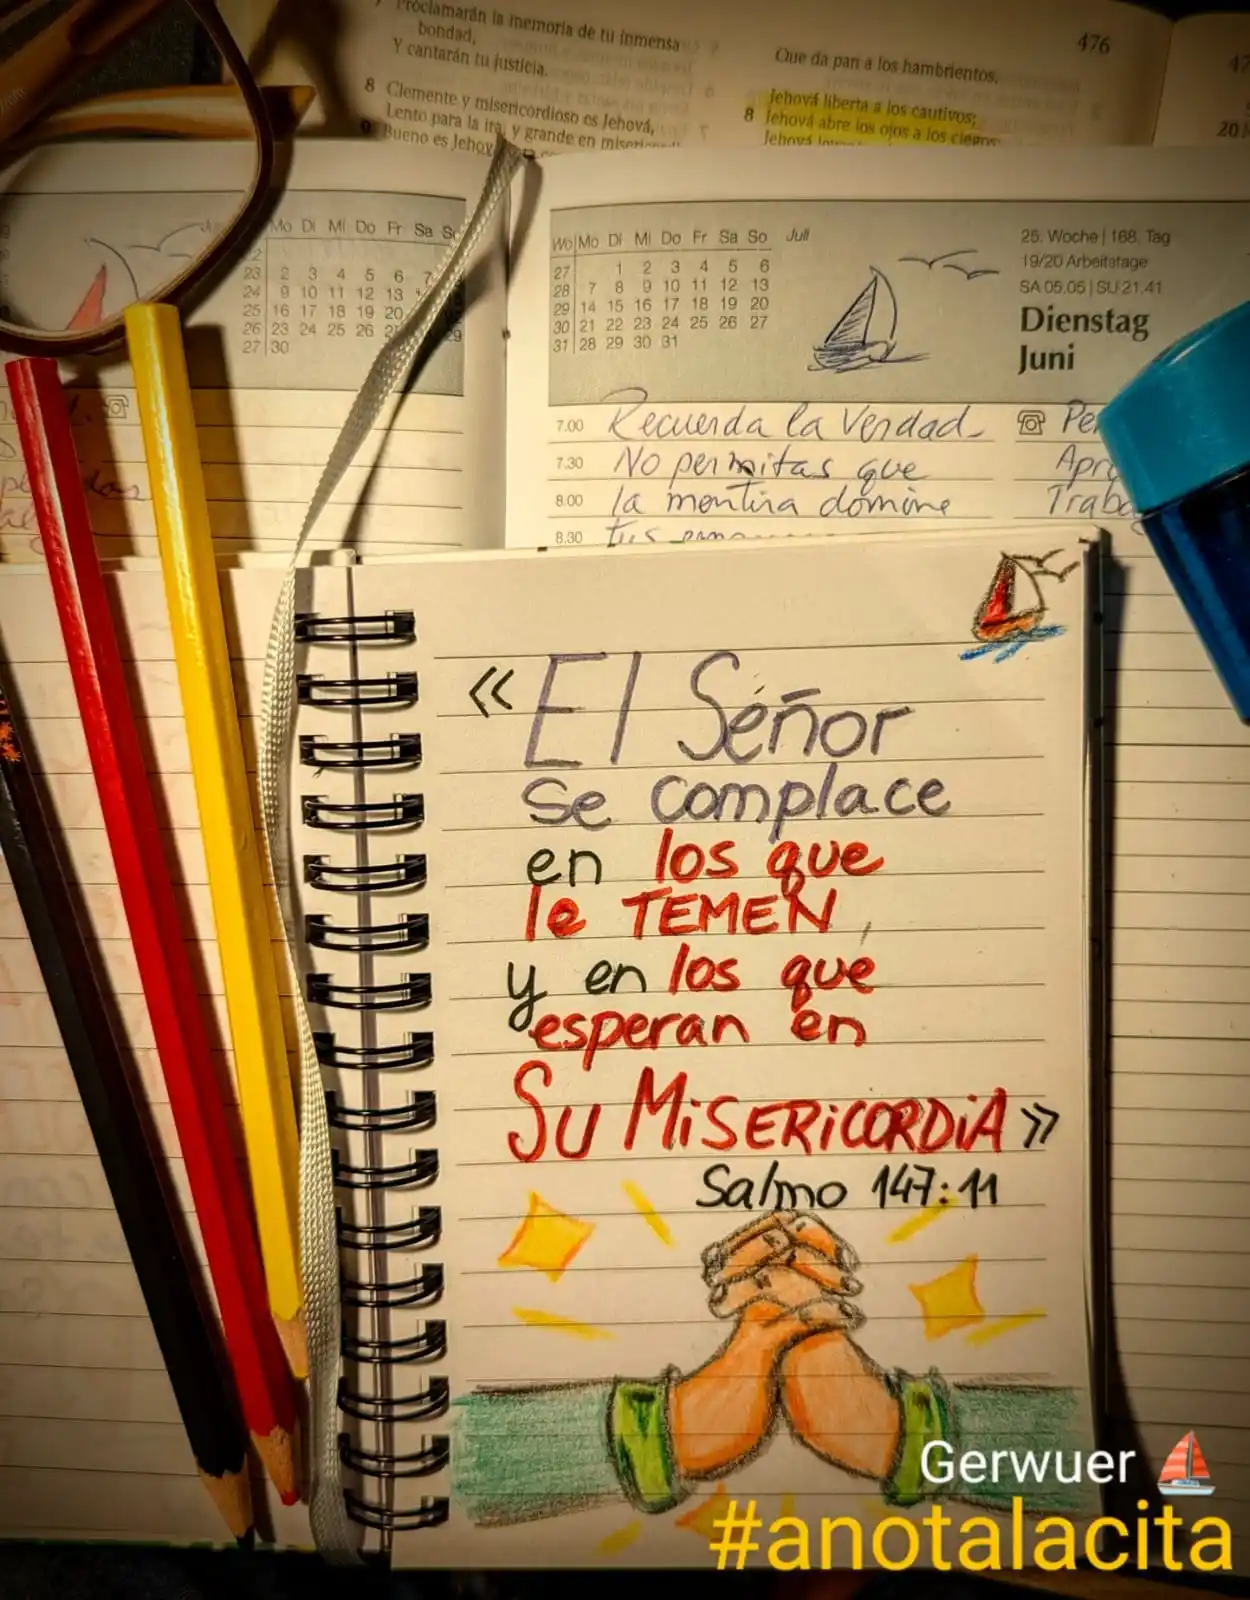 Proclamarán la memoria de tu inmensa
bondad,
Y cantarán tu justicia.
8 Clemente y misericordioso es Jehová,
Lento para la ira, y grande en
Bueno es
476
Que da pan a los hambrientos.
Jehová liberta a los cautivos;
8 Jehová abre los ojos a los ciegos;
Jehová
47
20
Mo Di Mi Do Fr Sa So
23 2 3 4 5 6 7
24 9 10 11 12 13
25 16 17 18 19 20
26 23 24 25 26 29
27 30
Wo Mo Di Mi Do Fr Sa So Juli
27 1 2 3 4 5 6
28 7 8 9 10 11 12 13
29 14 15 16 17 18 19 20
30 21 22 23 24 25 26 27
31 28 29 30 31
25. Woche | 168. Tag
19/20 Arbeitstage
SA 05.05 | SU 21.41
Dienstag
Juni
7.00 Recuerda la Verdad
7.30 No permitas que
8.00 la mentira domine
8.30 tus
«El Séñor
se complace
en los que
le TEMEN,
y en los que
esperan en
SU MiSERiCORDiA»
Salmo 147:11
Gerwuer
#anotalacita